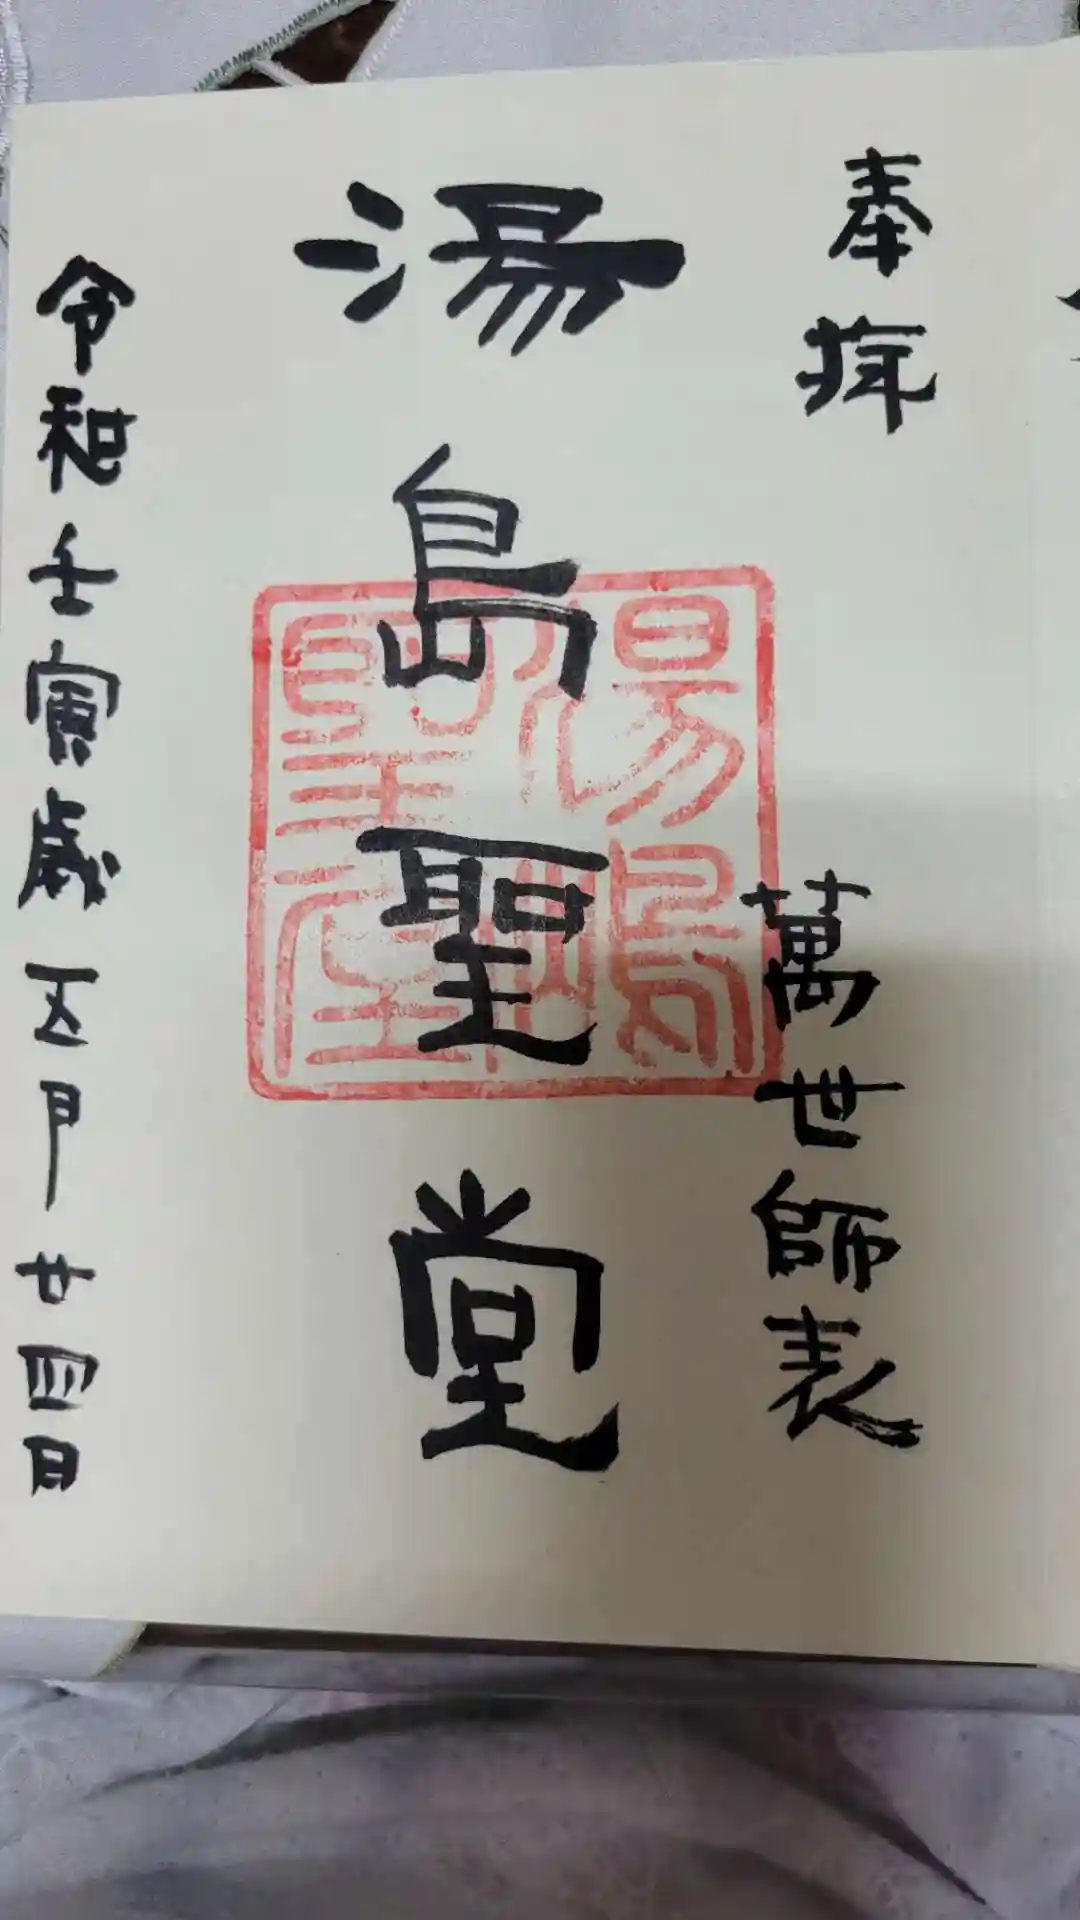 奉拝
萬世師表
湯島聖堂
湯島聖堂
令和壬寅歳五月廿四日